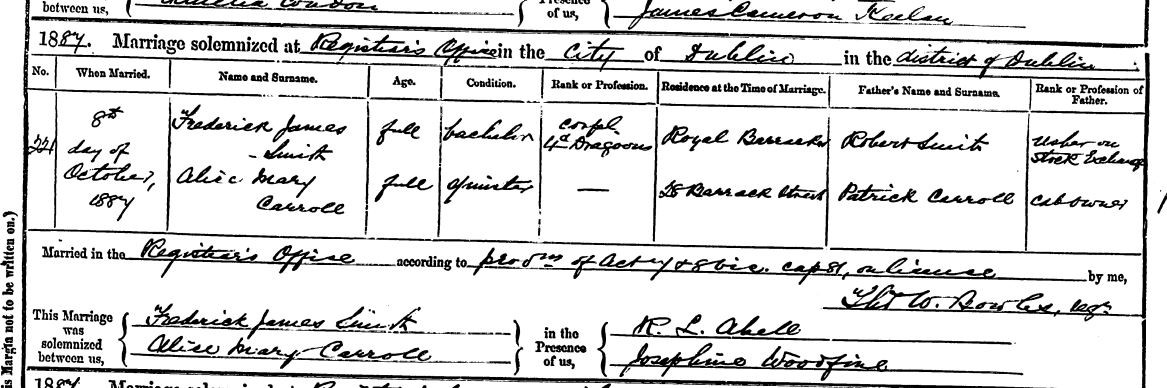 between us,
of us,
James Cameron Keelan
1887. Marriage solemnized at Registrar's Office in the City of Dublin in the district of Dublin
No. When Married. Name and Surname. Age. Condition. Rank or Profession. Residence at the Time of Marriage. Father's Name and Surname. Rank or Profession of Father.
221 8th day of October, 1887
Frederick James Smith full bachelor Corpl. 4th Dragoons Royal Barracks Robert Smith Usher on Stock Exchange
Alice Mary Carroll full spinster — 28 Barrack Street Patrick Carroll cab owner
Married in the Registrar's Office according to provns of Act 7 & 8 Vic. cap 81, on license by me,
Thos W. Bowles, regr.
This Marriage was solemnized between us,
Frederick James Smith
Alice Mary Carroll
in the Presence of us,
R. L. Abell
Josephine Woodfine
is Margin not to be written on.)
1887. Marriage solemnized at